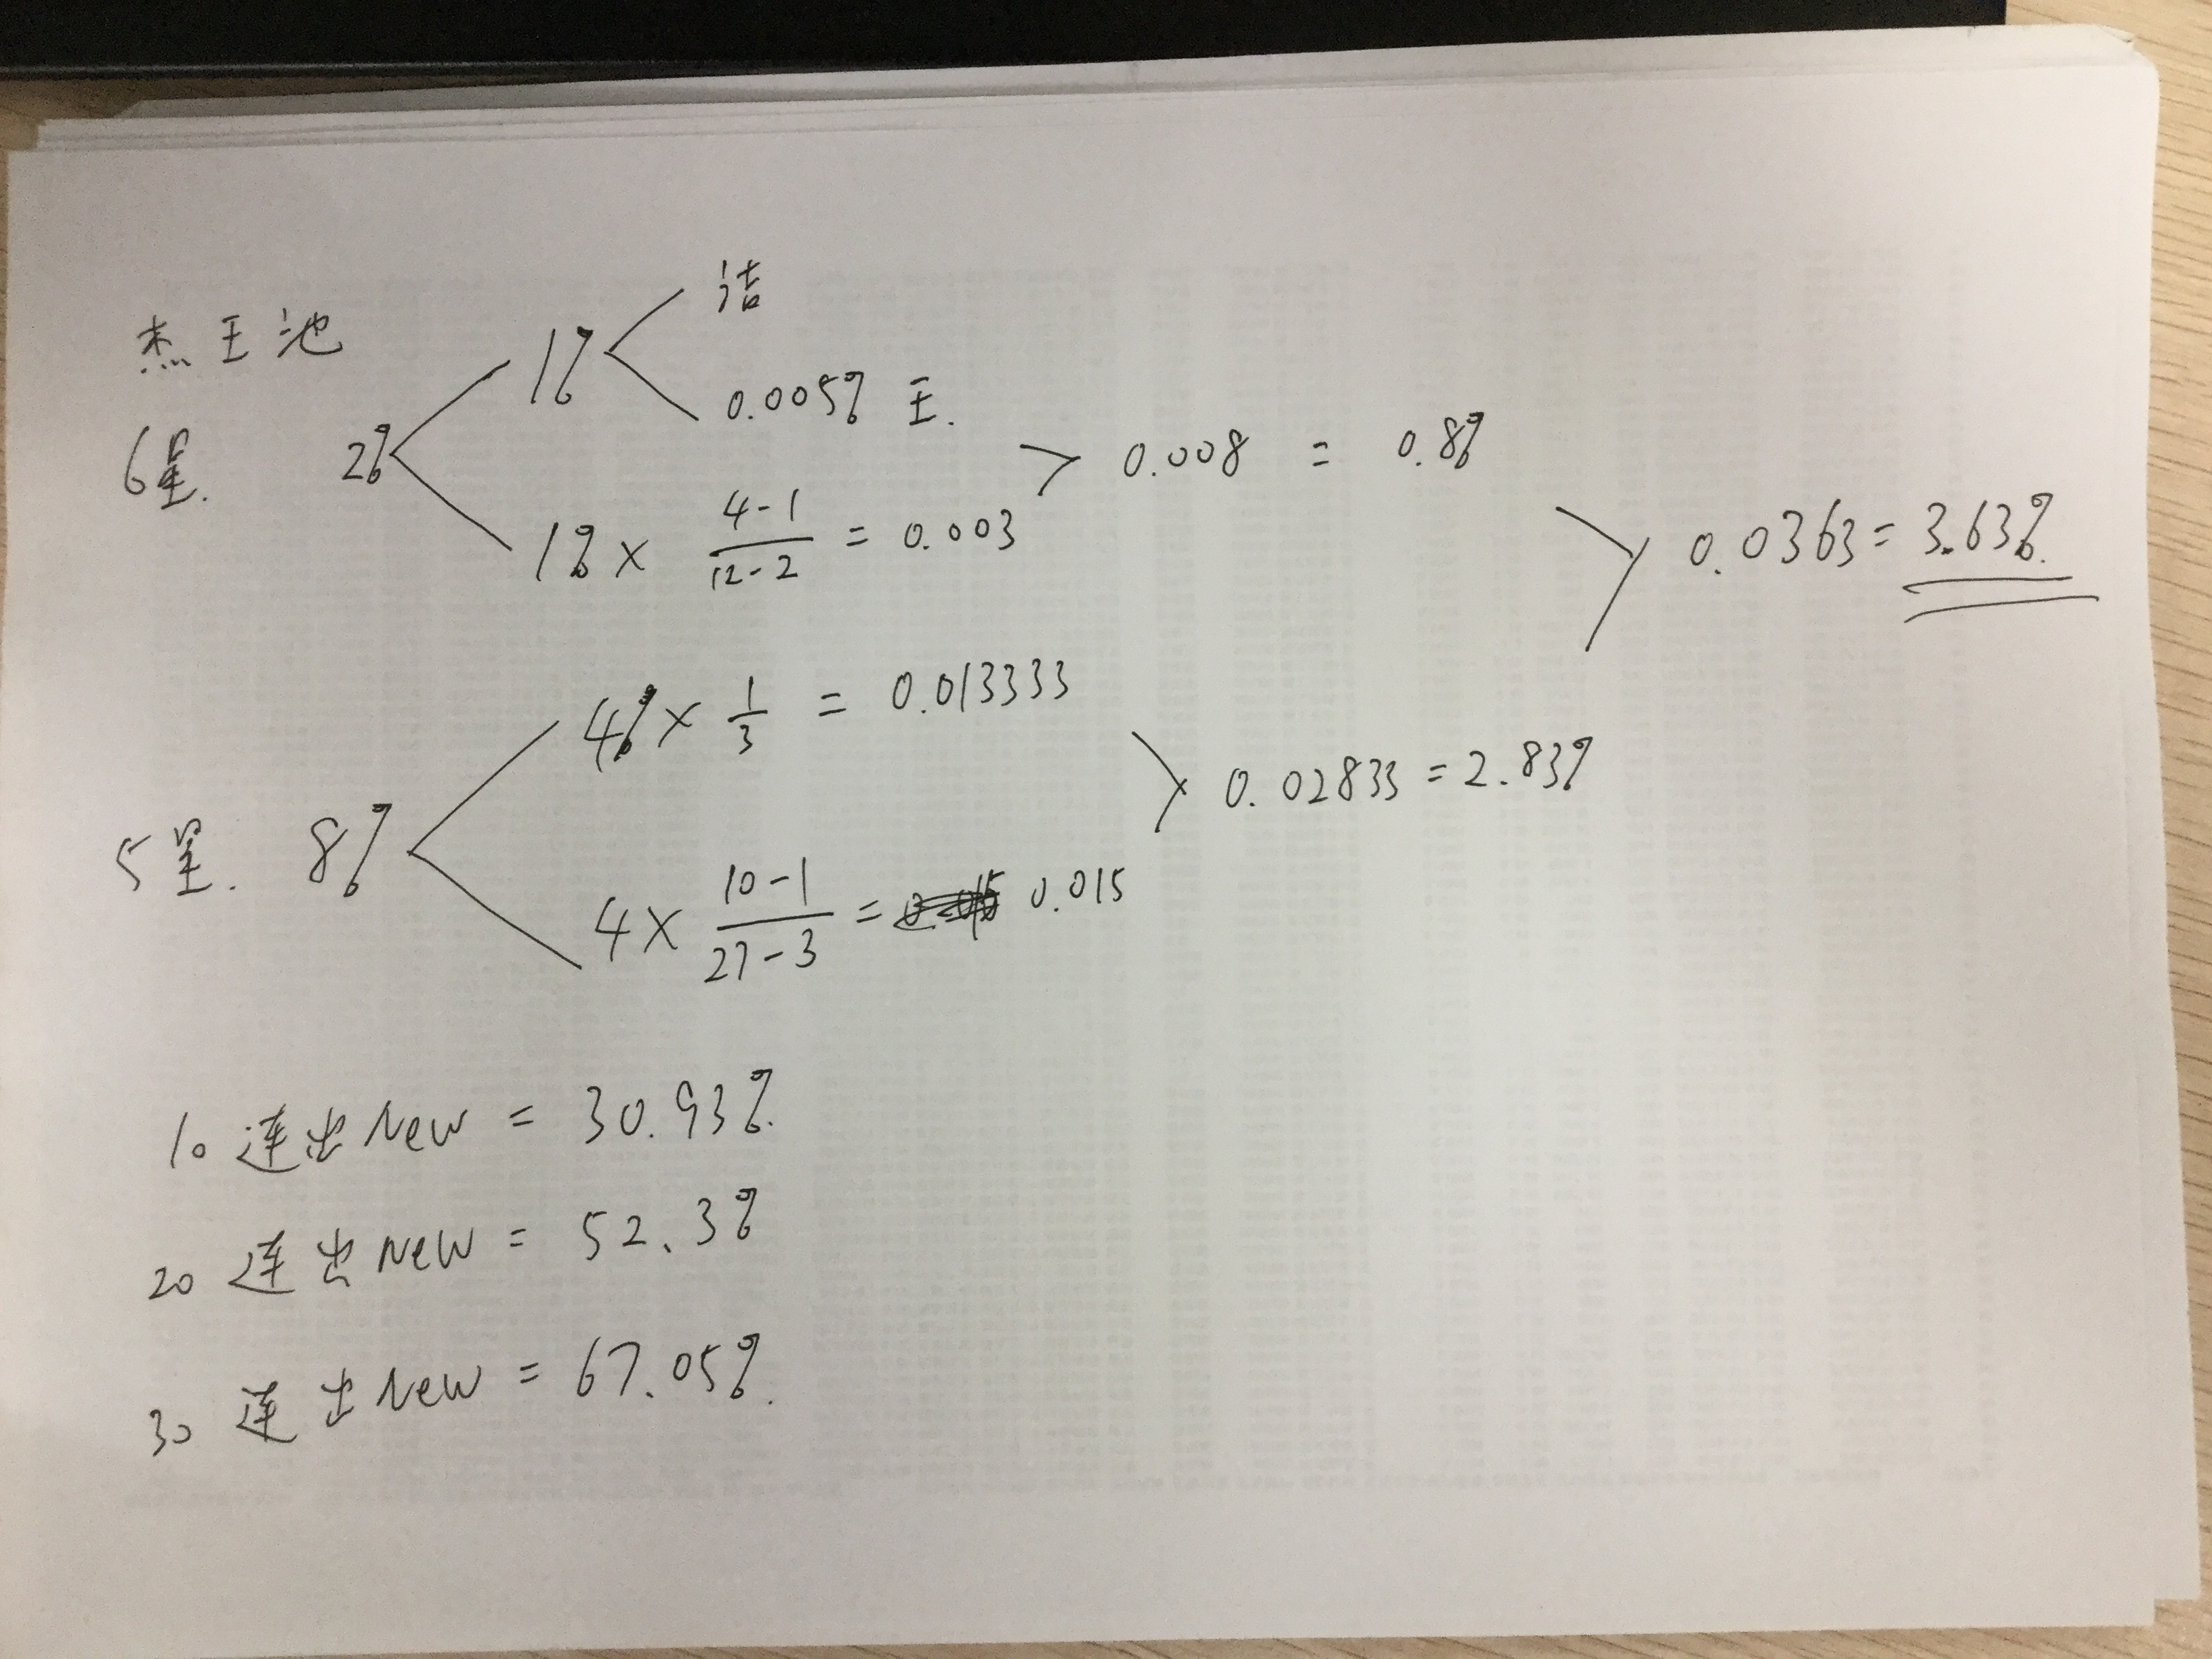 杰王池
洁
1%
0.005% 王.
6星. 2%
> 0.008 = 0.8%
1% × \frac{4-1}{12-2} = 0.003
0.0363 = 3.63%.
4% × \frac{1}{3} = 0.013333
0.02833 = 2.83%
5星. 8%
4 × \frac{10-1}{27-3} = 0.015
10 连出 New = 30.93%.
20 连出 New = 52.3%
30 连出 New = 67.05%.